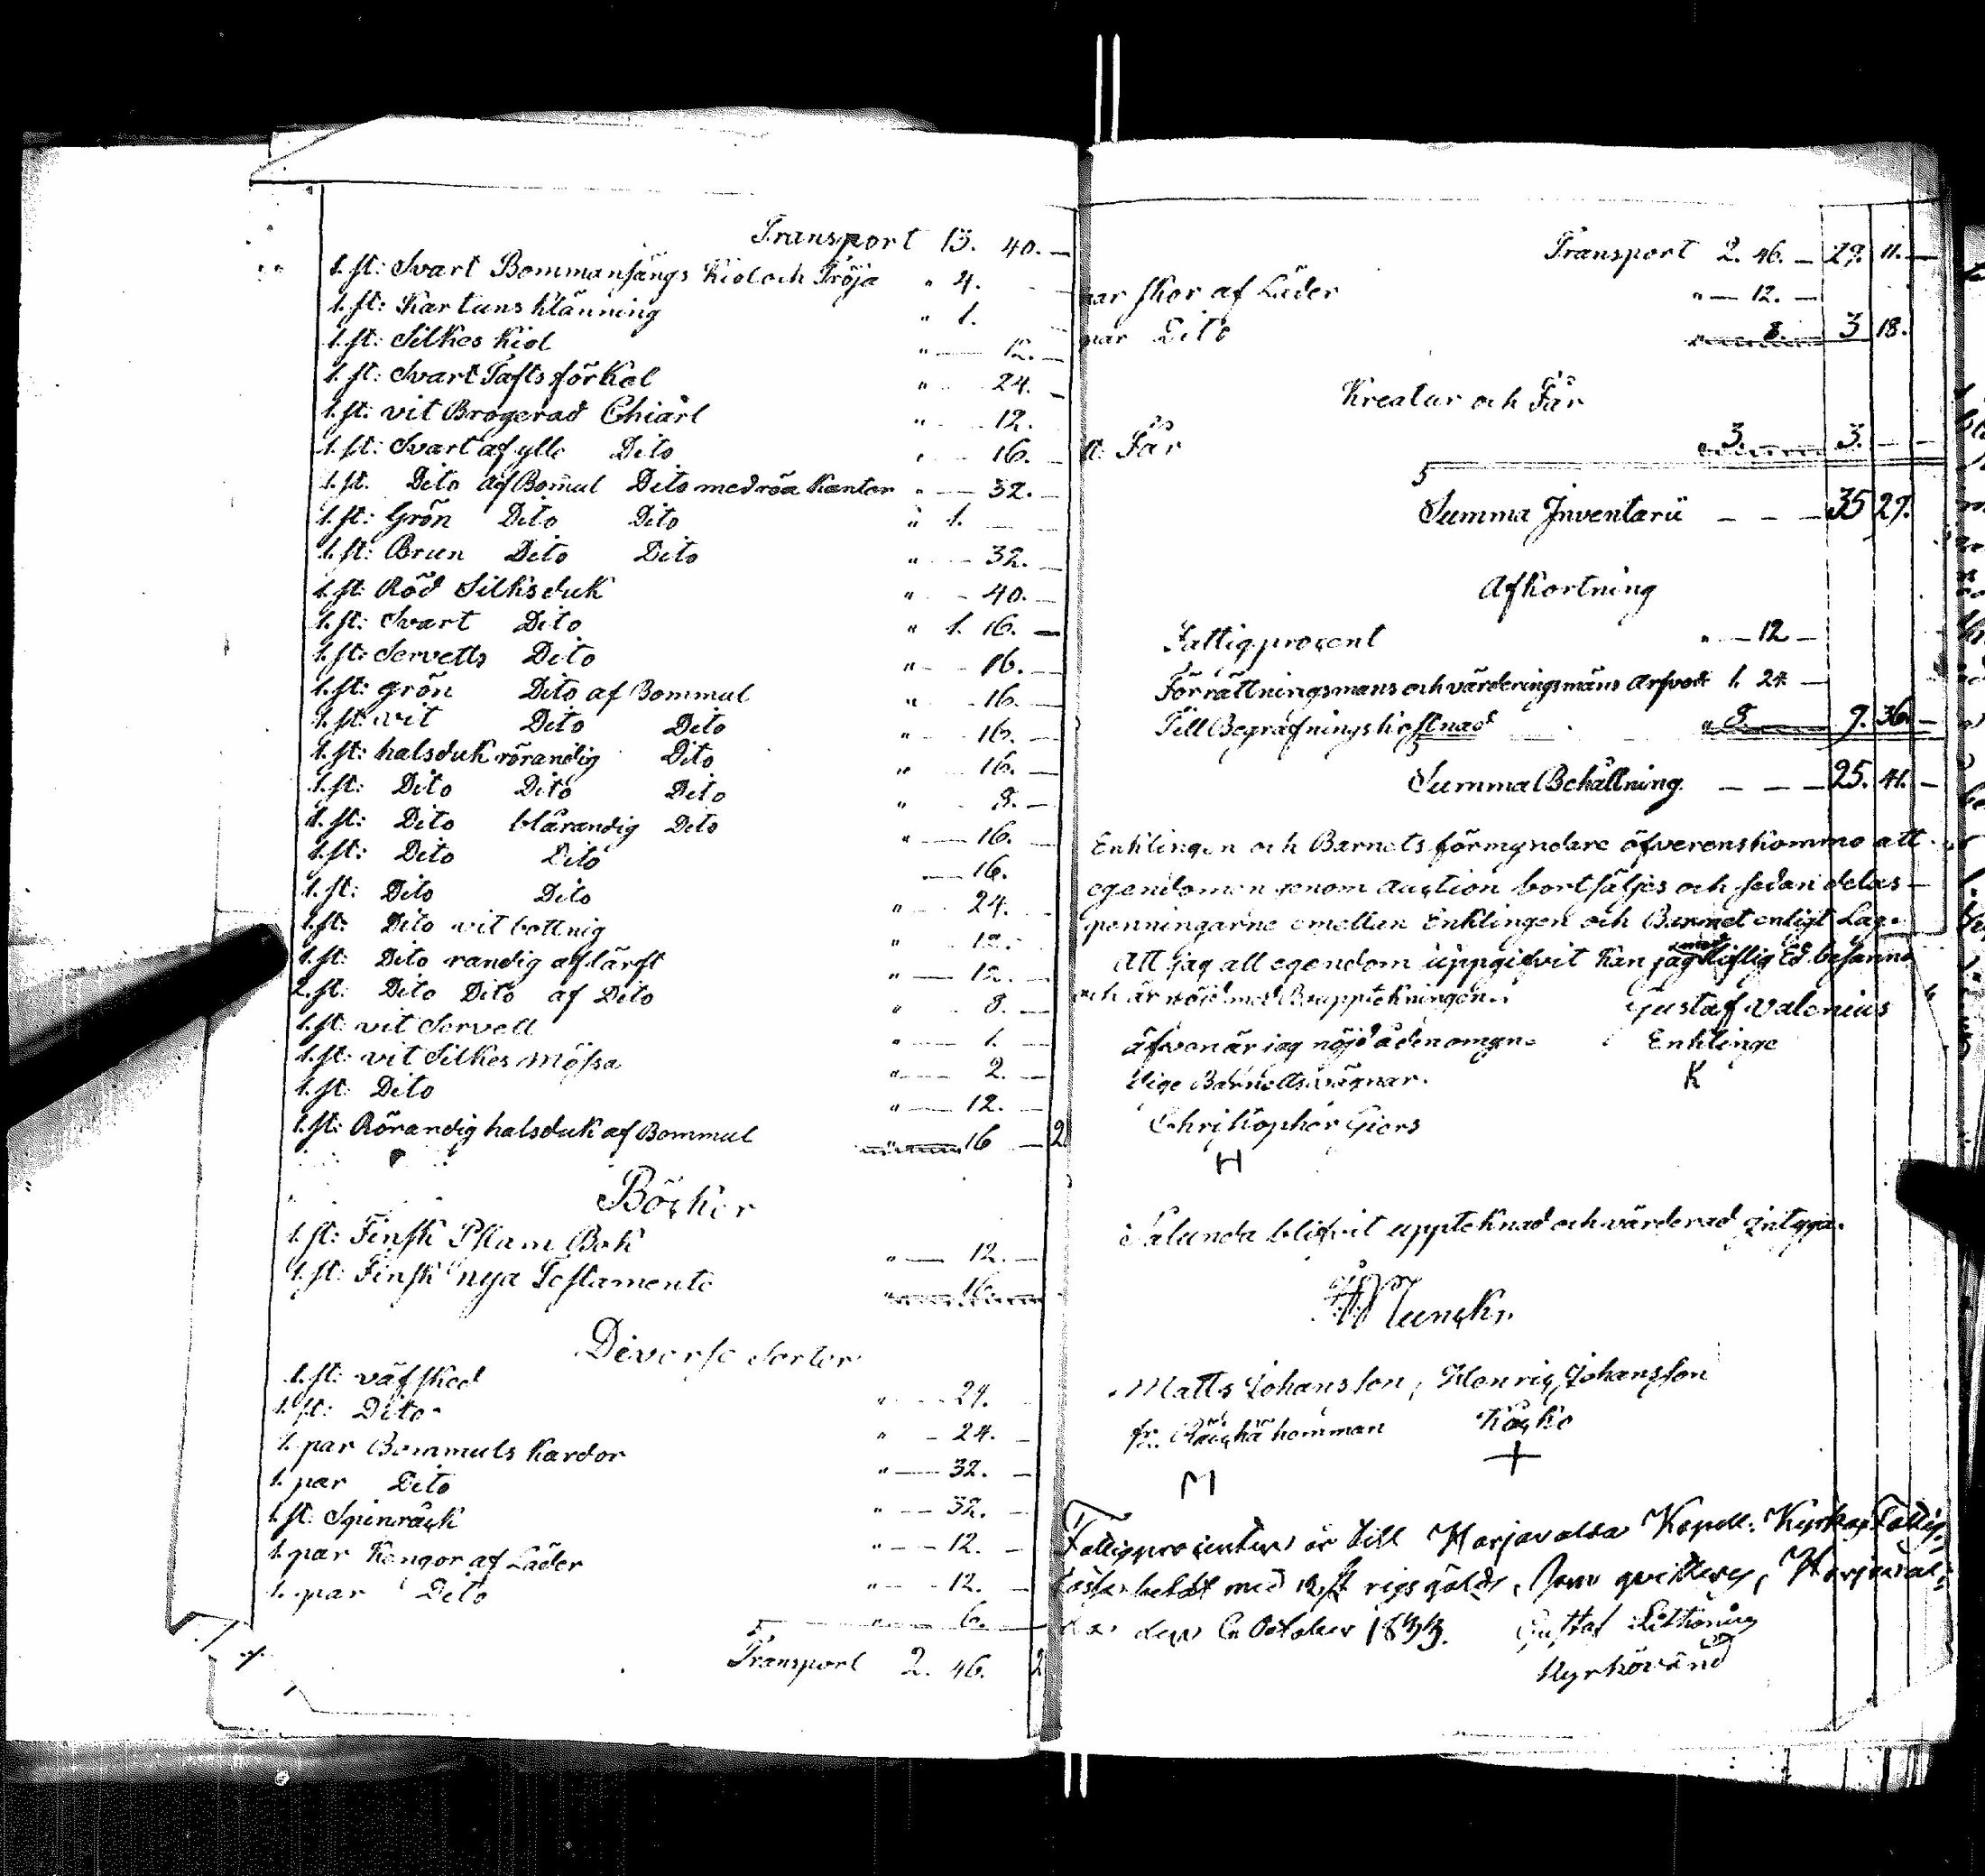 Transport 13. 40. —
1. st: Svart Bommansängs Kiol och Tröja " 4. - -
1. st: Kartuns Klänning " 1.
1. st: Silkes Kiol " — 12. —
1. st: Svart Tafts förkel " 24. —
1. st: vit Brogerad Chiarl " - - 12.
1. st: Svart af ylle Dito " - - 16. —
1. st. Dito af Bomul Dito med röa Kanter " — 32. —
1. st: Grön Dito Dito " 1. —
1. st: Brun Dito Dito " — 32. —
1. st: Röd Silksduk " - 40. —
1. st: Svart Dito " 1. 16. —
1. st: Servetts Dito " — 16. —
1. st: grön Dito af Bommul " - 16. —
1. st: vit Dito Dito " - 16. —
1. st: halsduk rörandig Dito " 16. —
1. st: Dito Dito Dito " 8. —
1. st: Dito blårandig Dito " — 16. —
1. st: Dito Dito — 16.
1. st: Dito Dito " — 24.
1. st: Dito vit bottnig " — 12.
1. st: Dito randig af lärft " — 12. —
2. st: Dito Dito af Dito " — 8. —
1. st: vit Servett " — 1. —
1. st: vit Silkes Mössa " — 2. —
1. st: Dito " — 12. —
1. st: Rörandig halsduk af Bommul 16 — 2
Böcker
1. st: Finsk Psalm Bok " — 12. —
1. st: Finsk nya Testamente 16
Diverse Sorter
1. st: väfsked " — 24.
1. st: Dito " — 24. —
1. par Bommuls Kardor " — 32. —
1. par Dito " — 32. —
1. st. Spinråck " — 12. —
1. par Kängor af Läder " — 12. —
1. par Dito " — 6. —
Transport 2. 46. 2
Transport 2. 46. — 29. 11. —
par skor af Läder " — 12. —
par Dito " 8. 3 18.
Kreatur och Får
st: Får " 3. — 3. — —
Summa Inventarii — — — 35 29.
Afkortning
Fattigprocent " — 12 —
Förrättningsmans och värderingsmäns Arfvode 1. 24 —
Till Begrafningskostnad " 8. — 9. 36. —
Summa Behållning. — — — 25. 41. —
Enklingen och Barnets förmyndare öfverenskommo att
egendomen genom auction bortsäljes och sedan delas
penningarne emellan Enklingen och Barnet enligt Lag.
Att jag all egendom uppgifvit kan jag med liflig Ed besanna
och är nöjd med Bouppteckningen. Gustaf Valenius
äfven är jag nöjd å den omyn- Enklinge
dige Barnetts vägnar. K
Christopher Giers
H
Sålunda blifvit upptecknad och värderad Intyga.
Munck.
Matts Johansson, Henric Johansson
fr. hemman
+
M
Fattigprocenten är till Harjavalda Kapell: Kyrkas Fattig-
betalt med 12 st rigsgälds, som qvitteras, Harjaval-
da den October 1833. Gustaf
Kyrkovärd